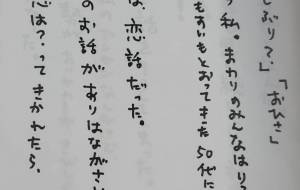 しぶり？」「おひさ」
っ私。まわりのみんなは
もあいもとおってきた50代に
は、恋話だった。
のお話がありはながさい
恋は？ってきかれたら、